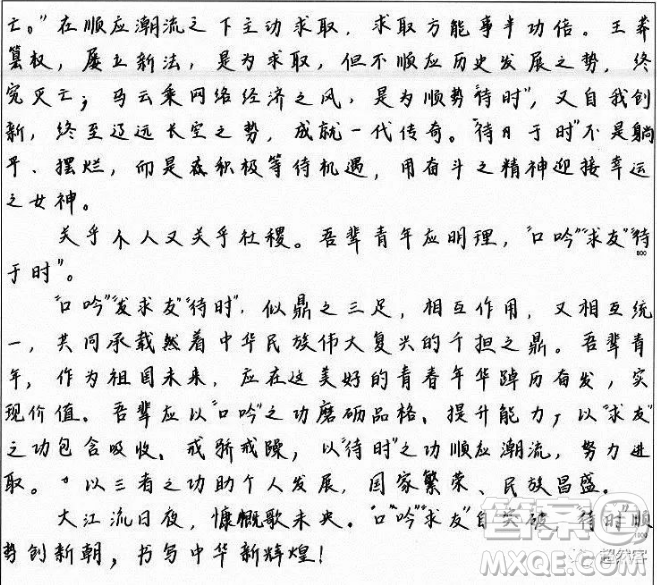 亡。”在顺应潮流之下主动求取，求取方能事半功倍。王莽
篡权，屡立新法，是为求取，但不顺应历史发展之势，终
究灭亡；马云乘网络经济之风，是为顺势“待时”，又自我创
新，终至辽远长空之势，成就一代传奇。“待月于时”不是躺
平、摆烂，而是在积极等待机遇，用奋斗之精神迎接幸运
之女神。
关乎个人又关乎社稷。吾辈青年应明理，“口吟”“求友”“待
800
于时”。
“口吟”“求友”“待时”，似鼎之三足，相互作用，又相互统
一，共同承载着中华民族伟大复兴的千担之鼎。吾辈青
年，作为祖国未来，应在这美好的青春年华踔厉奋发，实
现价值。吾辈应以“口吟”之功磨砺品格、提升能力，以“求友”
之功包含吸收、戒骄戒躁，以“待时”之功顺应潮流，努力进
取。以三者之功助个人发展，国家繁荣、民族昌盛。
大江流日夜，慷慨歌未央。“口吟”“求友”自突破，“待时”顺
势创新朝，书写中华新辉煌！
答案圈
MXQE.COM
超然客